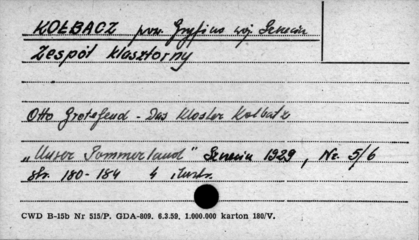 KOŁBACZ pow. Gryfino woj. Szczecin
Zespół klasztorny
Otto Grotefend - Das Kloster Kolbatz
„Unser Pommerland" Szczecin 1929, Nr. 5/6
str. 180-184 4 ilustr.
CWD B-15b Nr 515/P. GDA-809. 6.3.59. 1.000.000 karton 180/V.